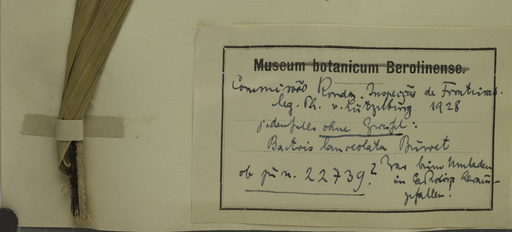 Museum botanicum Berolinense.
Commissão Rondon. Inspecção de Fronteiras.
leg. Ph. v. Lützelburg 1928
jedenfalls ohne Zweifel:
Bactris lanceolata Burret
ob zu n. 22739? Das beim Umladen
in herausgefallen.